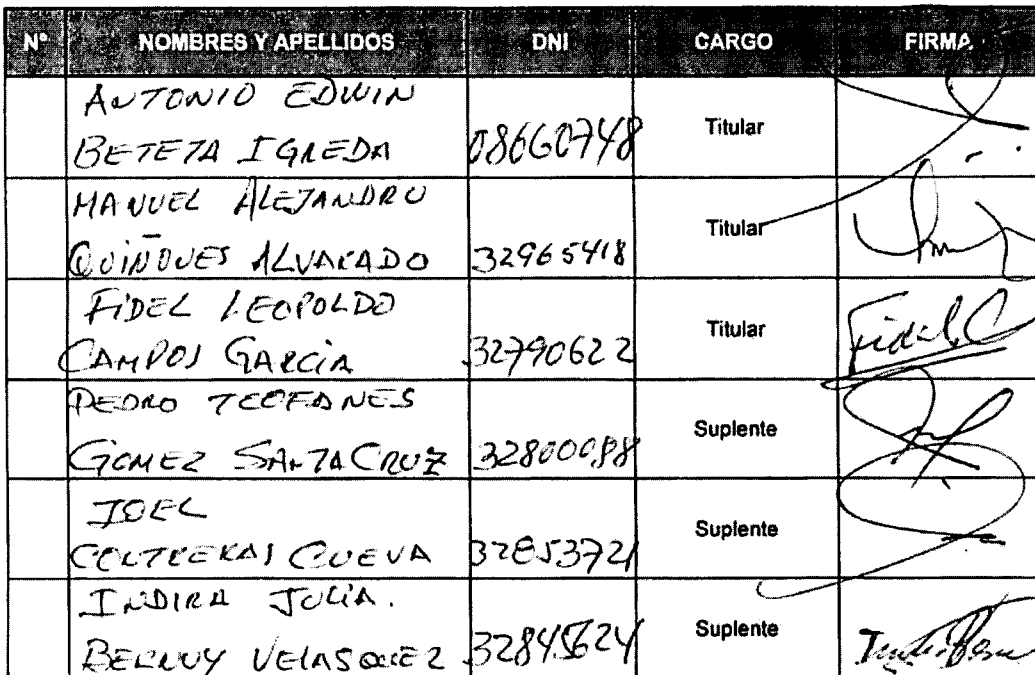 N° NOMBRES Y APELLIDOS DNI CARGO FIRMA
ANTONIO EDWIN
BETETA IGREDA 08660748 Titular
MANUEL ALEJANDRO
QUIÑONES ALVARADO 32965418 Titular
FIDEL LEOPOLDO
CAMPOS GARCIA 32790622 Titular Fidel C
PEDRO TEOFANES
GOMEZ SANTA CRUZ Suplente
JOEL
CONTRERAS CUEVA 32853721 Suplente
INDIRA JULIA.
BERNUY VELASQUEZ 32845624 Suplente